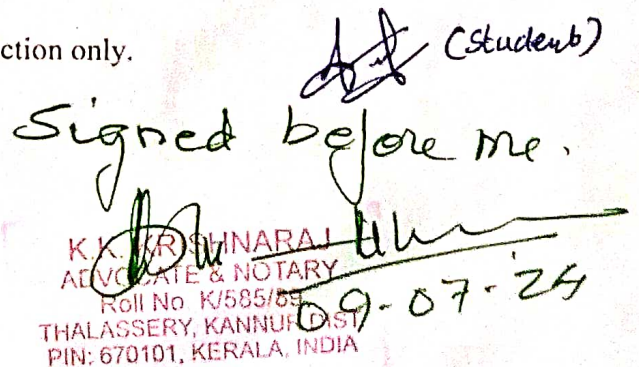 ction only.
(Student)
Signed before me.
K.K. KRISHNARAJ
ADVOCATE & NOTARY
Roll No. K/585/89
THALASSERY, KANNUR DIST
PIN: 670101, KERALA, INDIA
09-07-'24